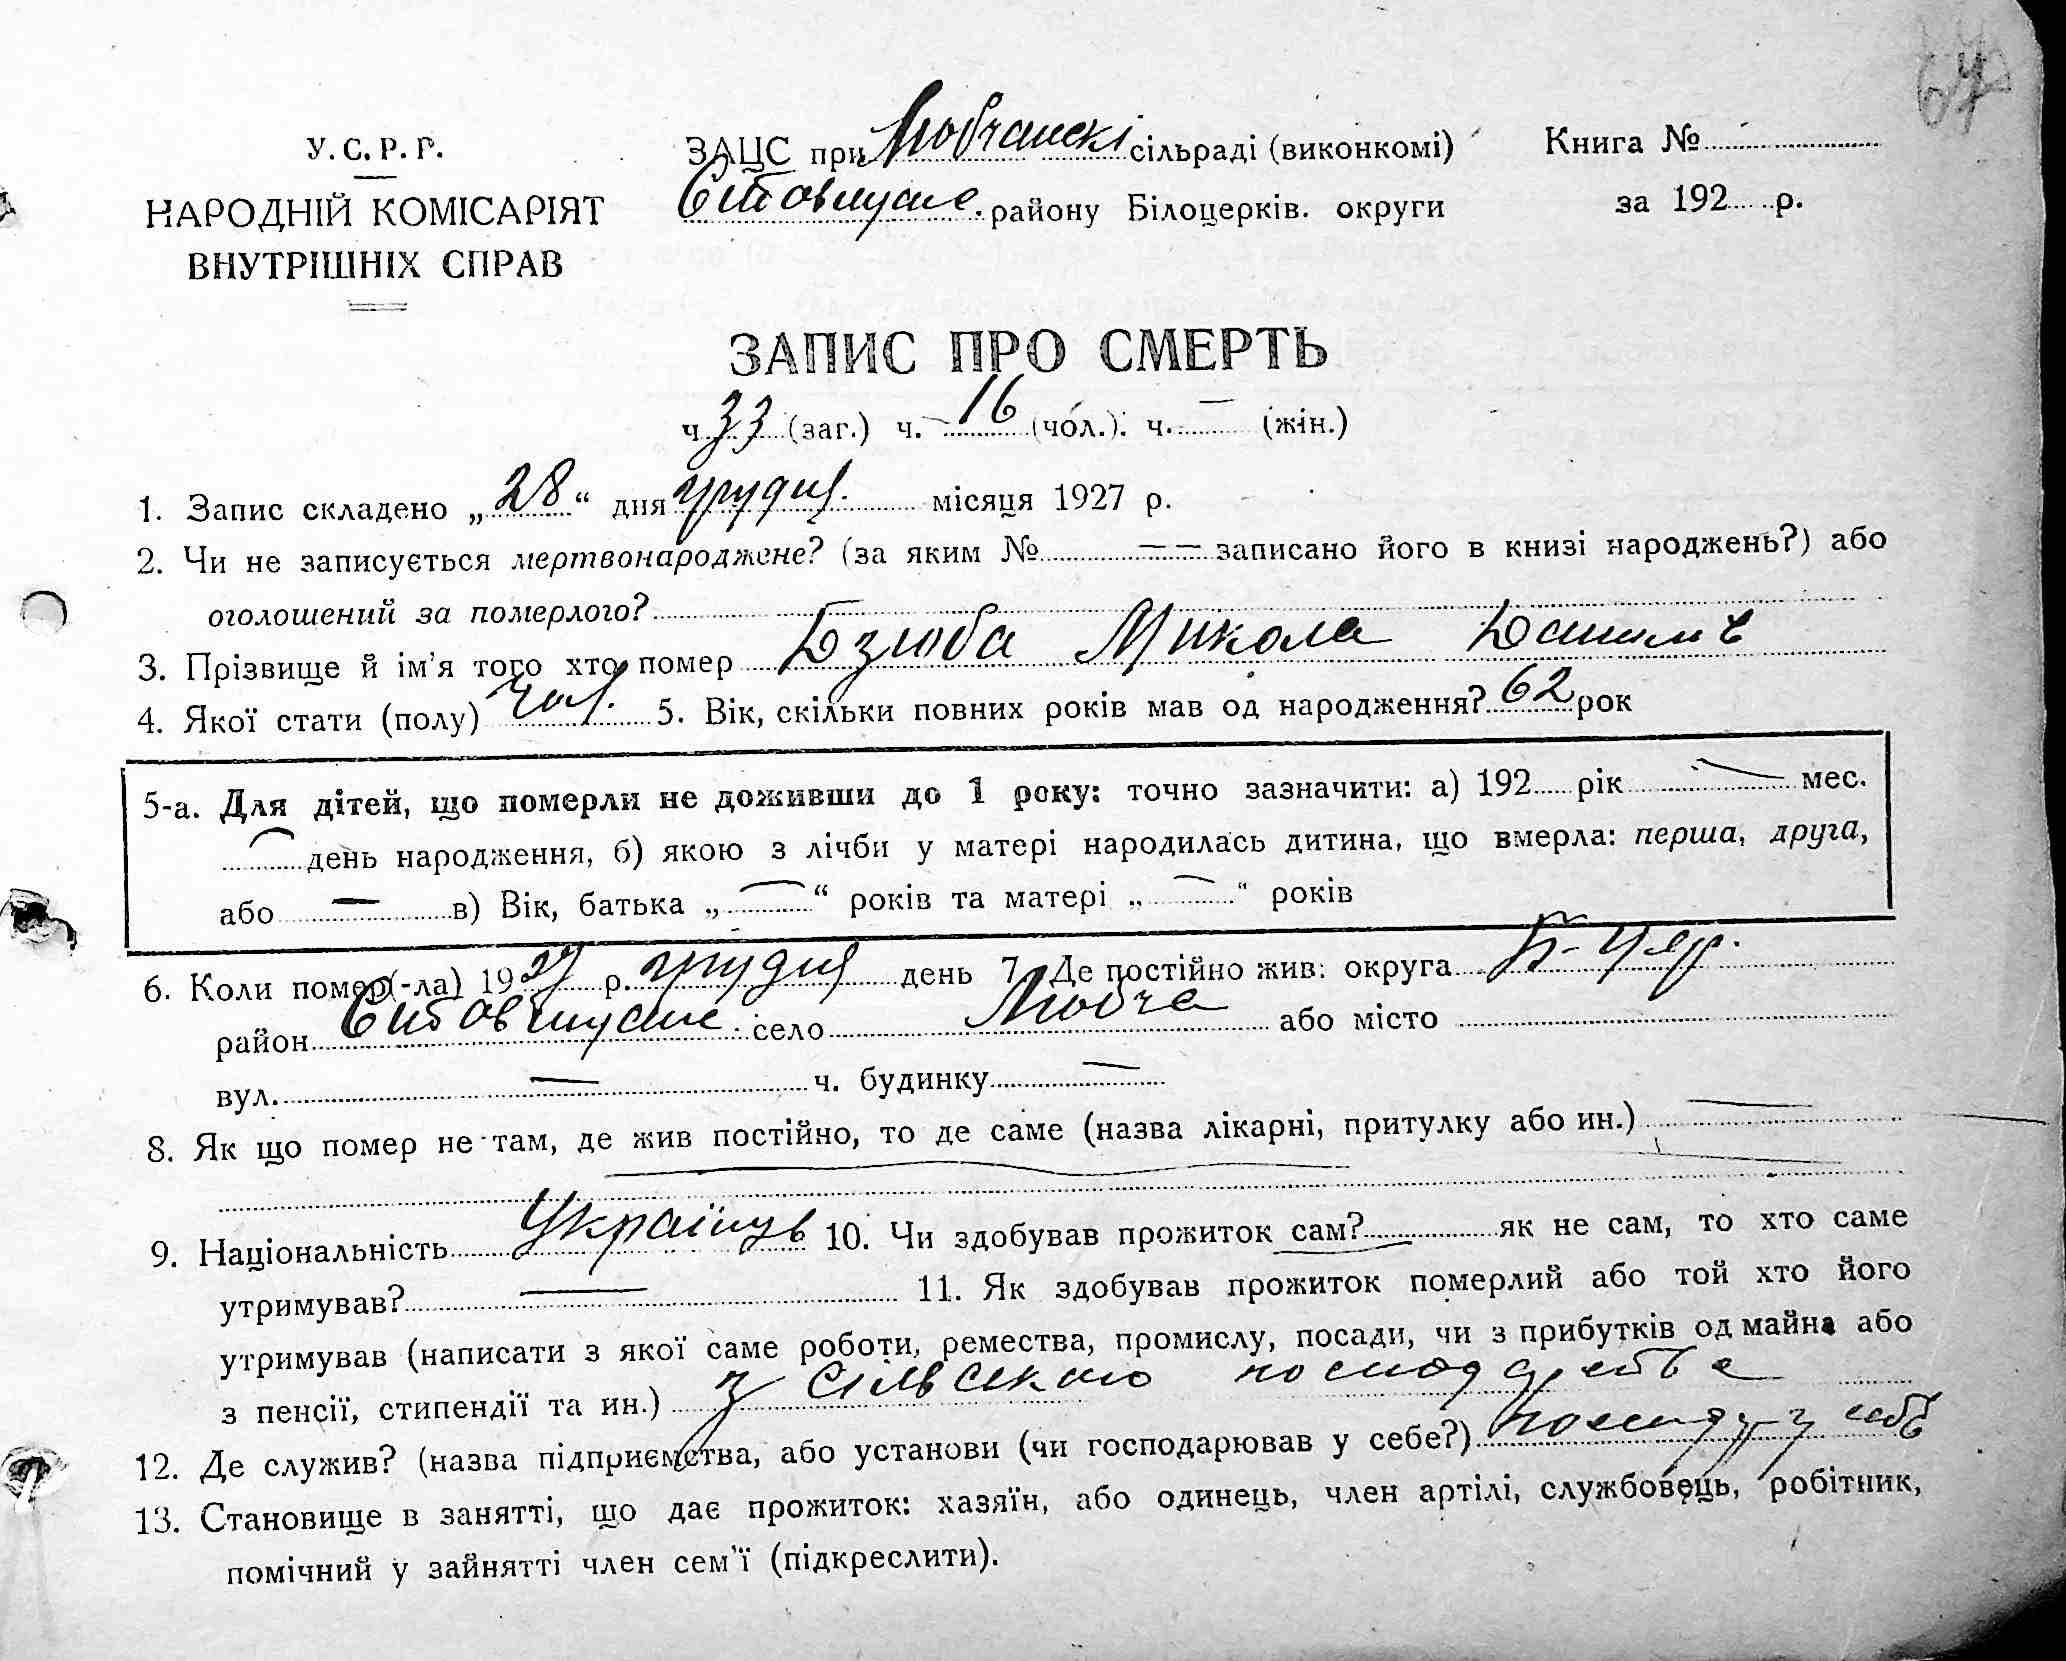 67
У.С.Р.Р.
НАРОДНІЙ КОМІСАРІЯТ
ВНУТРІШНІХ СПРАВ
ЗАЦС при Любчанскі сільраді (виконкомі)
району Білоцерків. округи
Книга №
за 192 р.
ЗАПИС ПРО СМЕРТЬ
ч 33 (заг.) ч. 16 (чол.). ч. — (жін.)
1. Запис складено „28“ дня грудня місяця 1927 р.
2. Чи не записується мертвонароджене? (за яким № — — записано його в книзі народжень?) або
оголошений за померлого?
3. Прізвище й ім'я того хто помер Дзюба Микола
4. Якої стати (полу) чол. 5. Вік, скільки повних років мав од народження? 62 рок
5-а. Для дітей, що померли не доживши до 1 року: точно зазначити: а) 192 рік — мес.
— день народження, б) якою з лічби у матері народилась дитина, що вмерла: перша, друга,
або — в) Вік, батька „—“ років та матері „—“ років
6. Коли помер(-ла) 1927 р. грудня день 7. Де постійно жив: округа Б-Церк.
район село Любча або місто
вул. — ч. будинку —
8. Як що помер не там, де жив постійно, то де саме (назва лікарні, притулку або ин.) —
9. Національність Українць 10. Чи здобував прожиток сам? як не сам, то хто саме
утримував? — 11. Як здобував прожиток померлий або той хто його
утримував (написати з якої саме роботи, ремества, промислу, посади, чи з прибутків од майна або
з пенсії, стипендії та ин.) з сільського господарства
12. Де служив? (назва підприємства, або установи (чи господарював у себе?) господ у себе
13. Становище в занятті, що дає прожиток: хазяїн, або одинець, член артілі, службовець, робітник,
помічний у зайнятті член сем'ї (підкреслити).